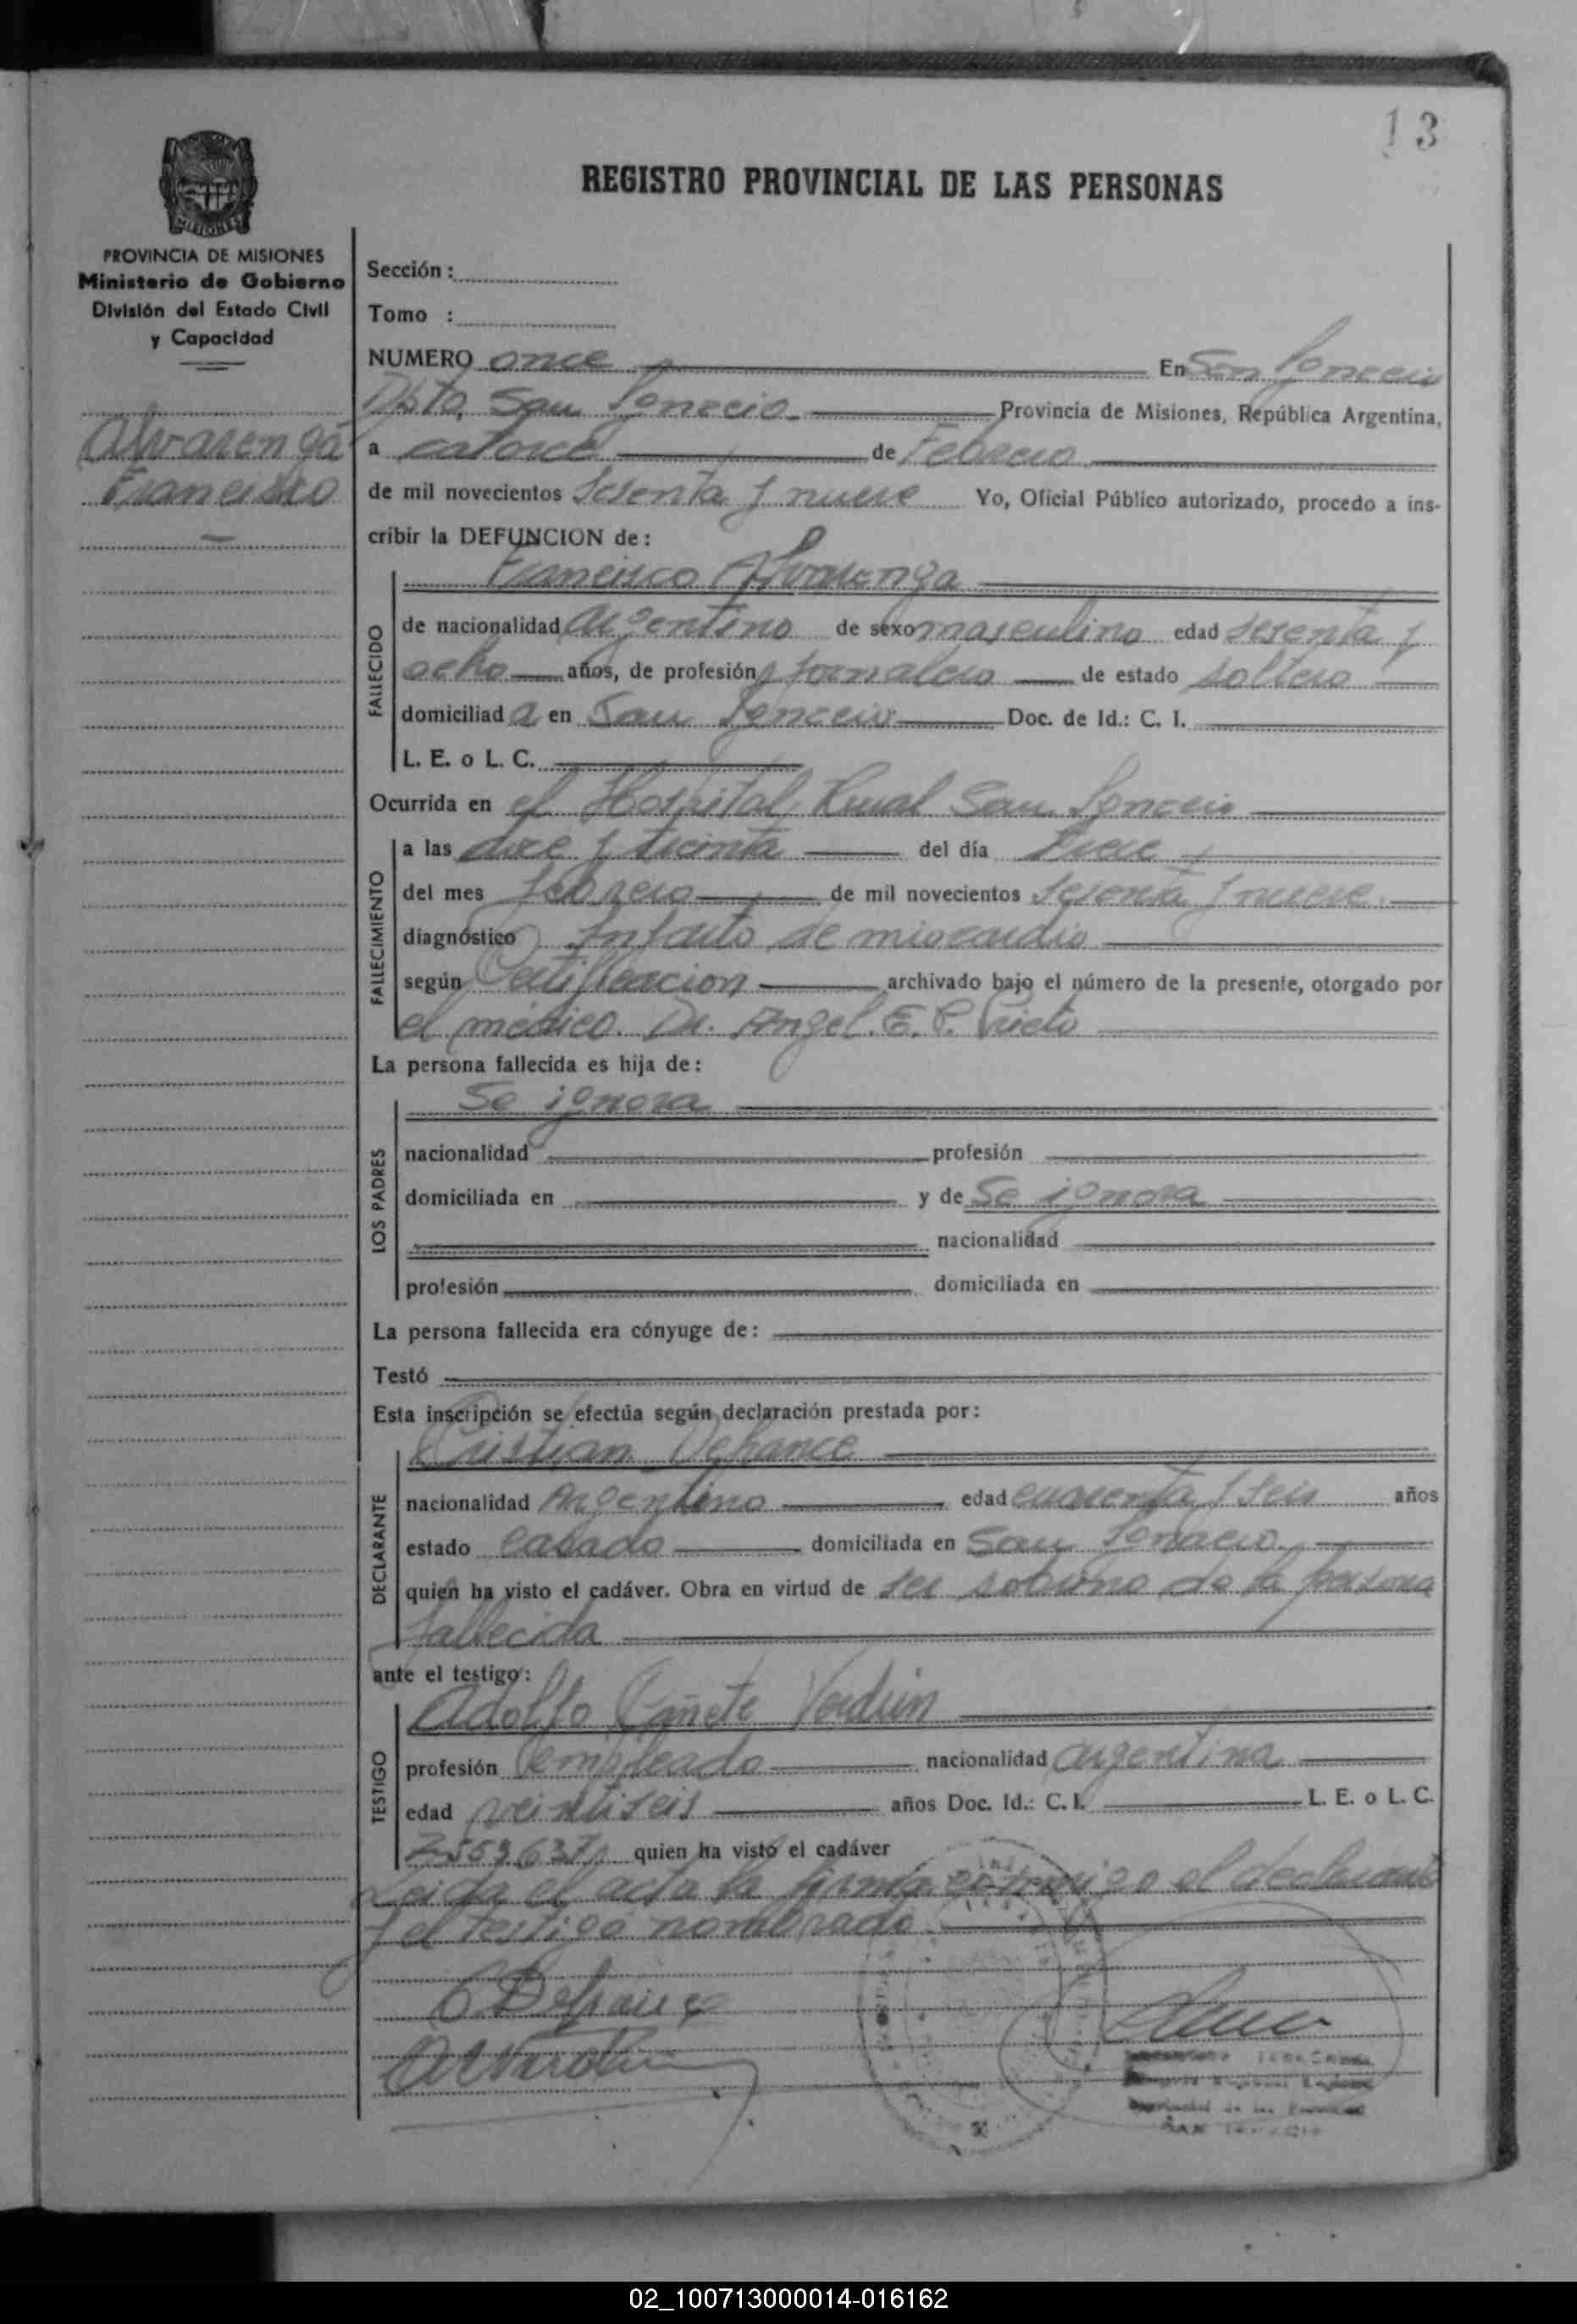 13
REGISTRO PROVINCIAL DE LAS PERSONAS
MISIONES
PROVINCIA DE MISIONES
Ministerio de Gobierno
División del Estado Civil
y Capacidad
Alvarenga
Francisco
Sección :
Tomo :
NUMERO once En San Ignacio
Dpto. San Ignacio Provincia de Misiones, República Argentina,
a catorce de Febrero
de mil novecientos sesenta y nueve Yo, Oficial Público autorizado, procedo a ins-
cribir la DEFUNCION de :
FALLECIDO
Francisco Alvarenga
de nacionalidad argentino de sexo masculino edad sesenta y
ocho años, de profesión jornalero de estado soltero
domiciliad a en San Ignacio Doc. de Id.: C. I.
L. E. o L. C.
Ocurrida en el Hospital Rural San Ignacio
FALLECIMIENTO
a las doce y treinta del día trece
del mes febrero de mil novecientos sesenta y nueve
diagnóstico Infarto de miocardio
según Certificacion archivado bajo el número de la presente, otorgado por
el médico Dr. Angel E. P. Prieto
La persona fallecida es hija de :
LOS PADRES
Se ignora
nacionalidad profesión
domiciliada en y de Se ignora
nacionalidad
profesión domiciliada en
La persona fallecida era cónyuge de :
Testó
Esta inscripción se efectúa según declaración prestada por :
DECLARANTE
Cristian
nacionalidad Argentino edad cuarenta y seis años
estado Casado domiciliada en San Ignacio
quien ha visto el cadáver. Obra en virtud de ser sobrino de la persona
fallecida
ante el testigo :
TESTIGO
Adolfo Cañete Verdún
profesión empleado nacionalidad argentina
edad veintiseis años Doc. Id.: C. I. L. E. o L. C.
quien ha visto el cadáver
Leida el acta la firma conmigo el declarante
y el testigo nombrado
02_100713000014-016162